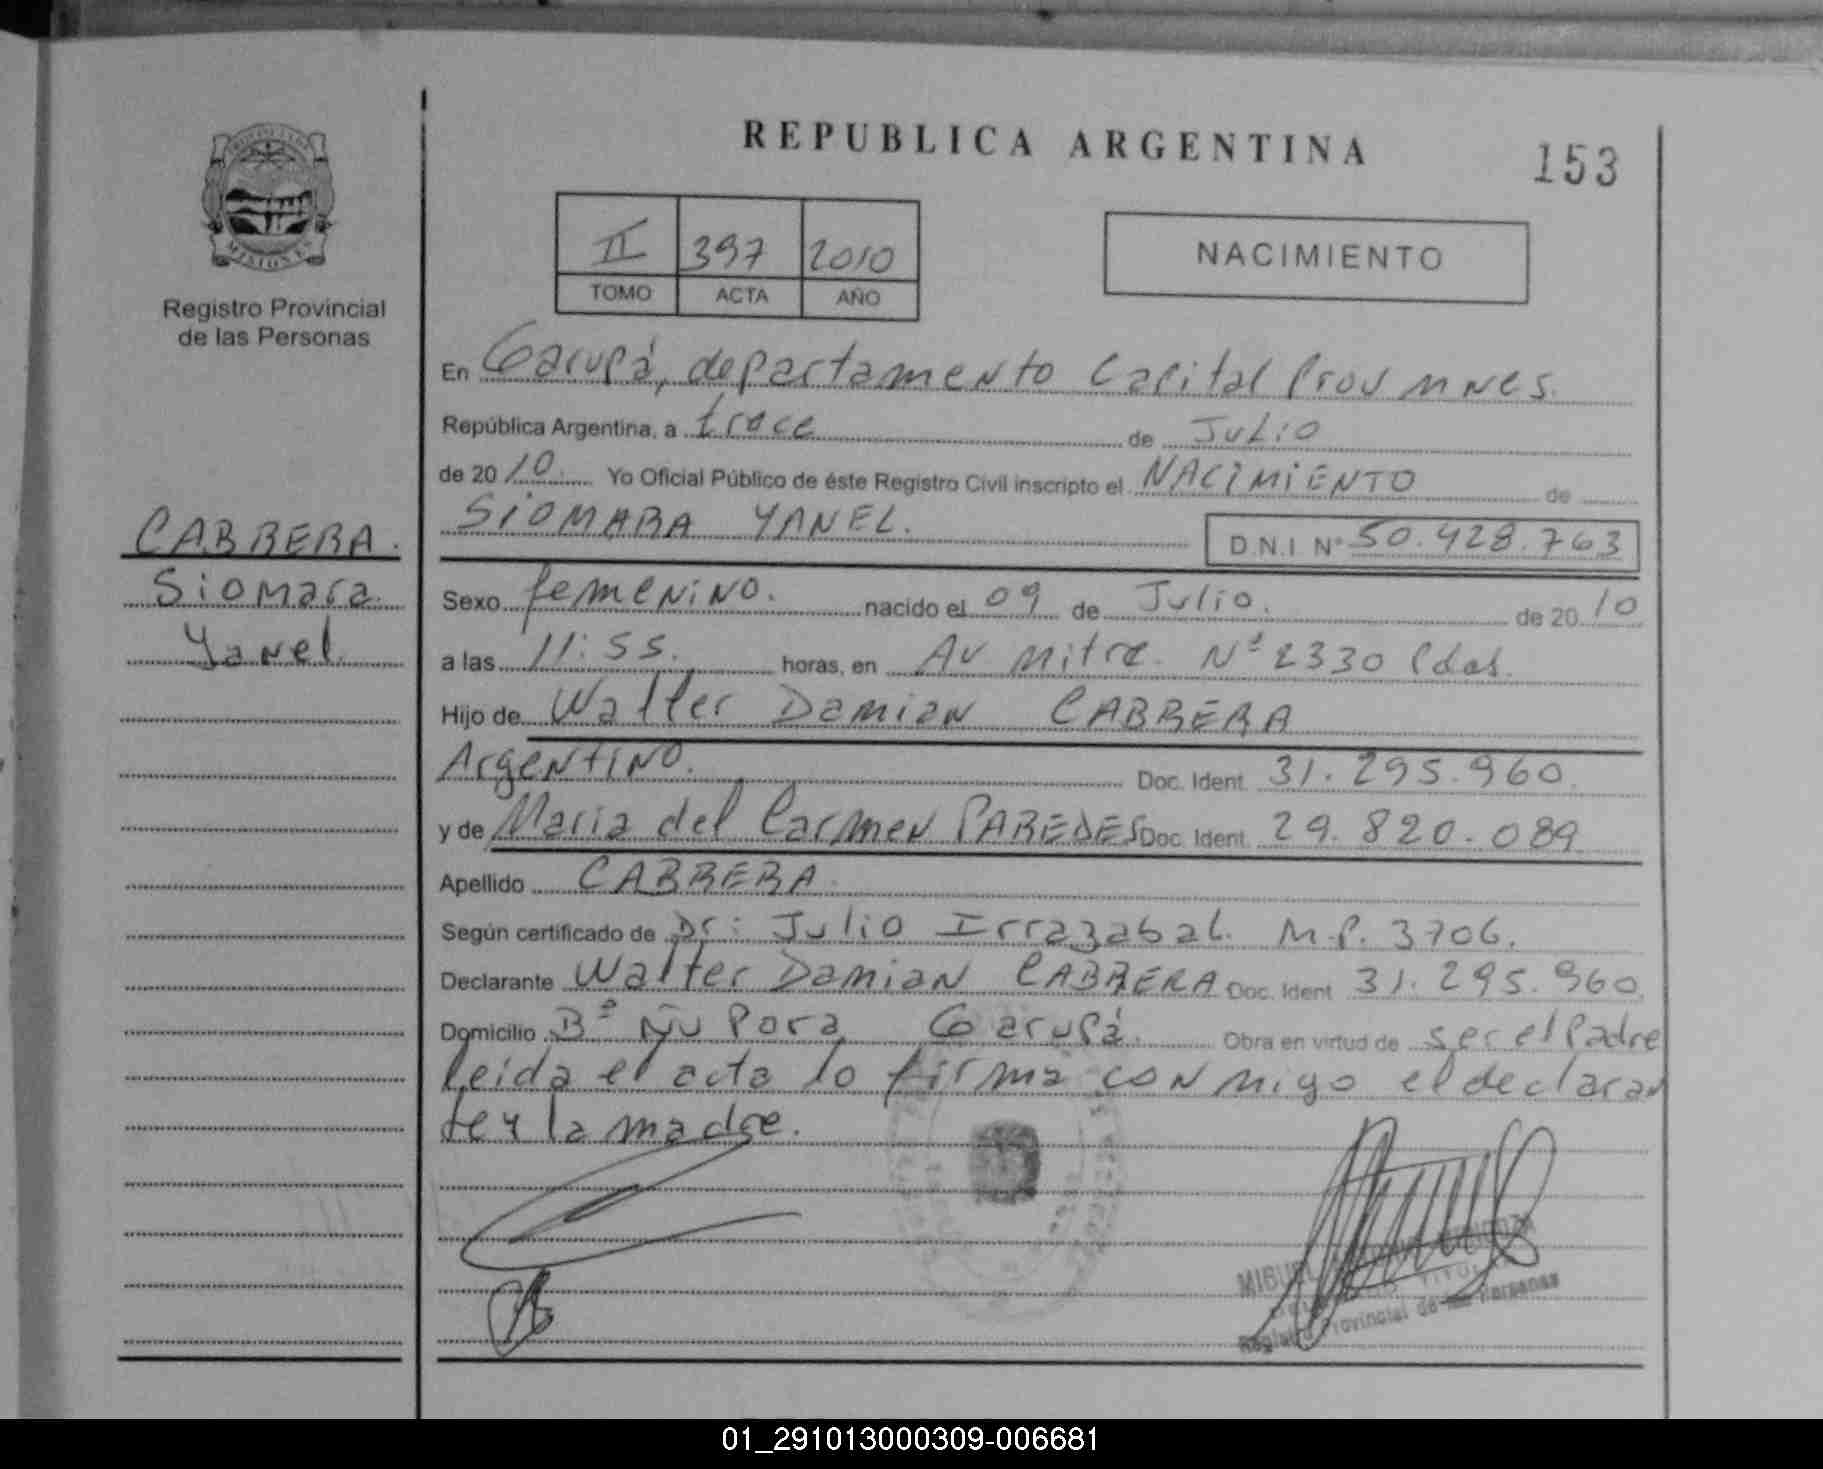 REPUBLICA ARGENTINA
153
II 397 2010
TOMO ACTA AÑO
NACIMIENTO
MISIONES
Registro Provincial
de las Personas
CABRERA.
Siomara
Yanel
En Garupá, departamento Capital Prov mnes.
República Argentina, a trece de Julio
de 2010. Yo Oficial Público de éste Registro Civil inscripto el NACIMIENTO de
SIOMARA YANEL.
D.N.I. Nº 50.428.763
Sexo femenino. nacido el 09 de Julio. de 2010
a las 11:55. horas, en Av mitre. Nº 2330 Pdas.
Hijo de Walter Damian CABRERA
Argentino. Doc. Ident. 31.295.960
y de Maria del Carmen PAREDES Doc. Ident. 29.820.089
Apellido CABRERA.
Según certificado de Dr: Julio Irrazabal. M.P. 3706.
Declarante Walter Damian CABRERA Doc. Ident. 31.295.960
Domicilio Bº Ñu Pora Garupá. Obra en virtud de ser el Padre
leida el acta lo firma conmigo el declaran
te y la madre.
MIGUEL MENDOZA
TITULAR
Registro Provincial de las Personas
01_291013000309-006681